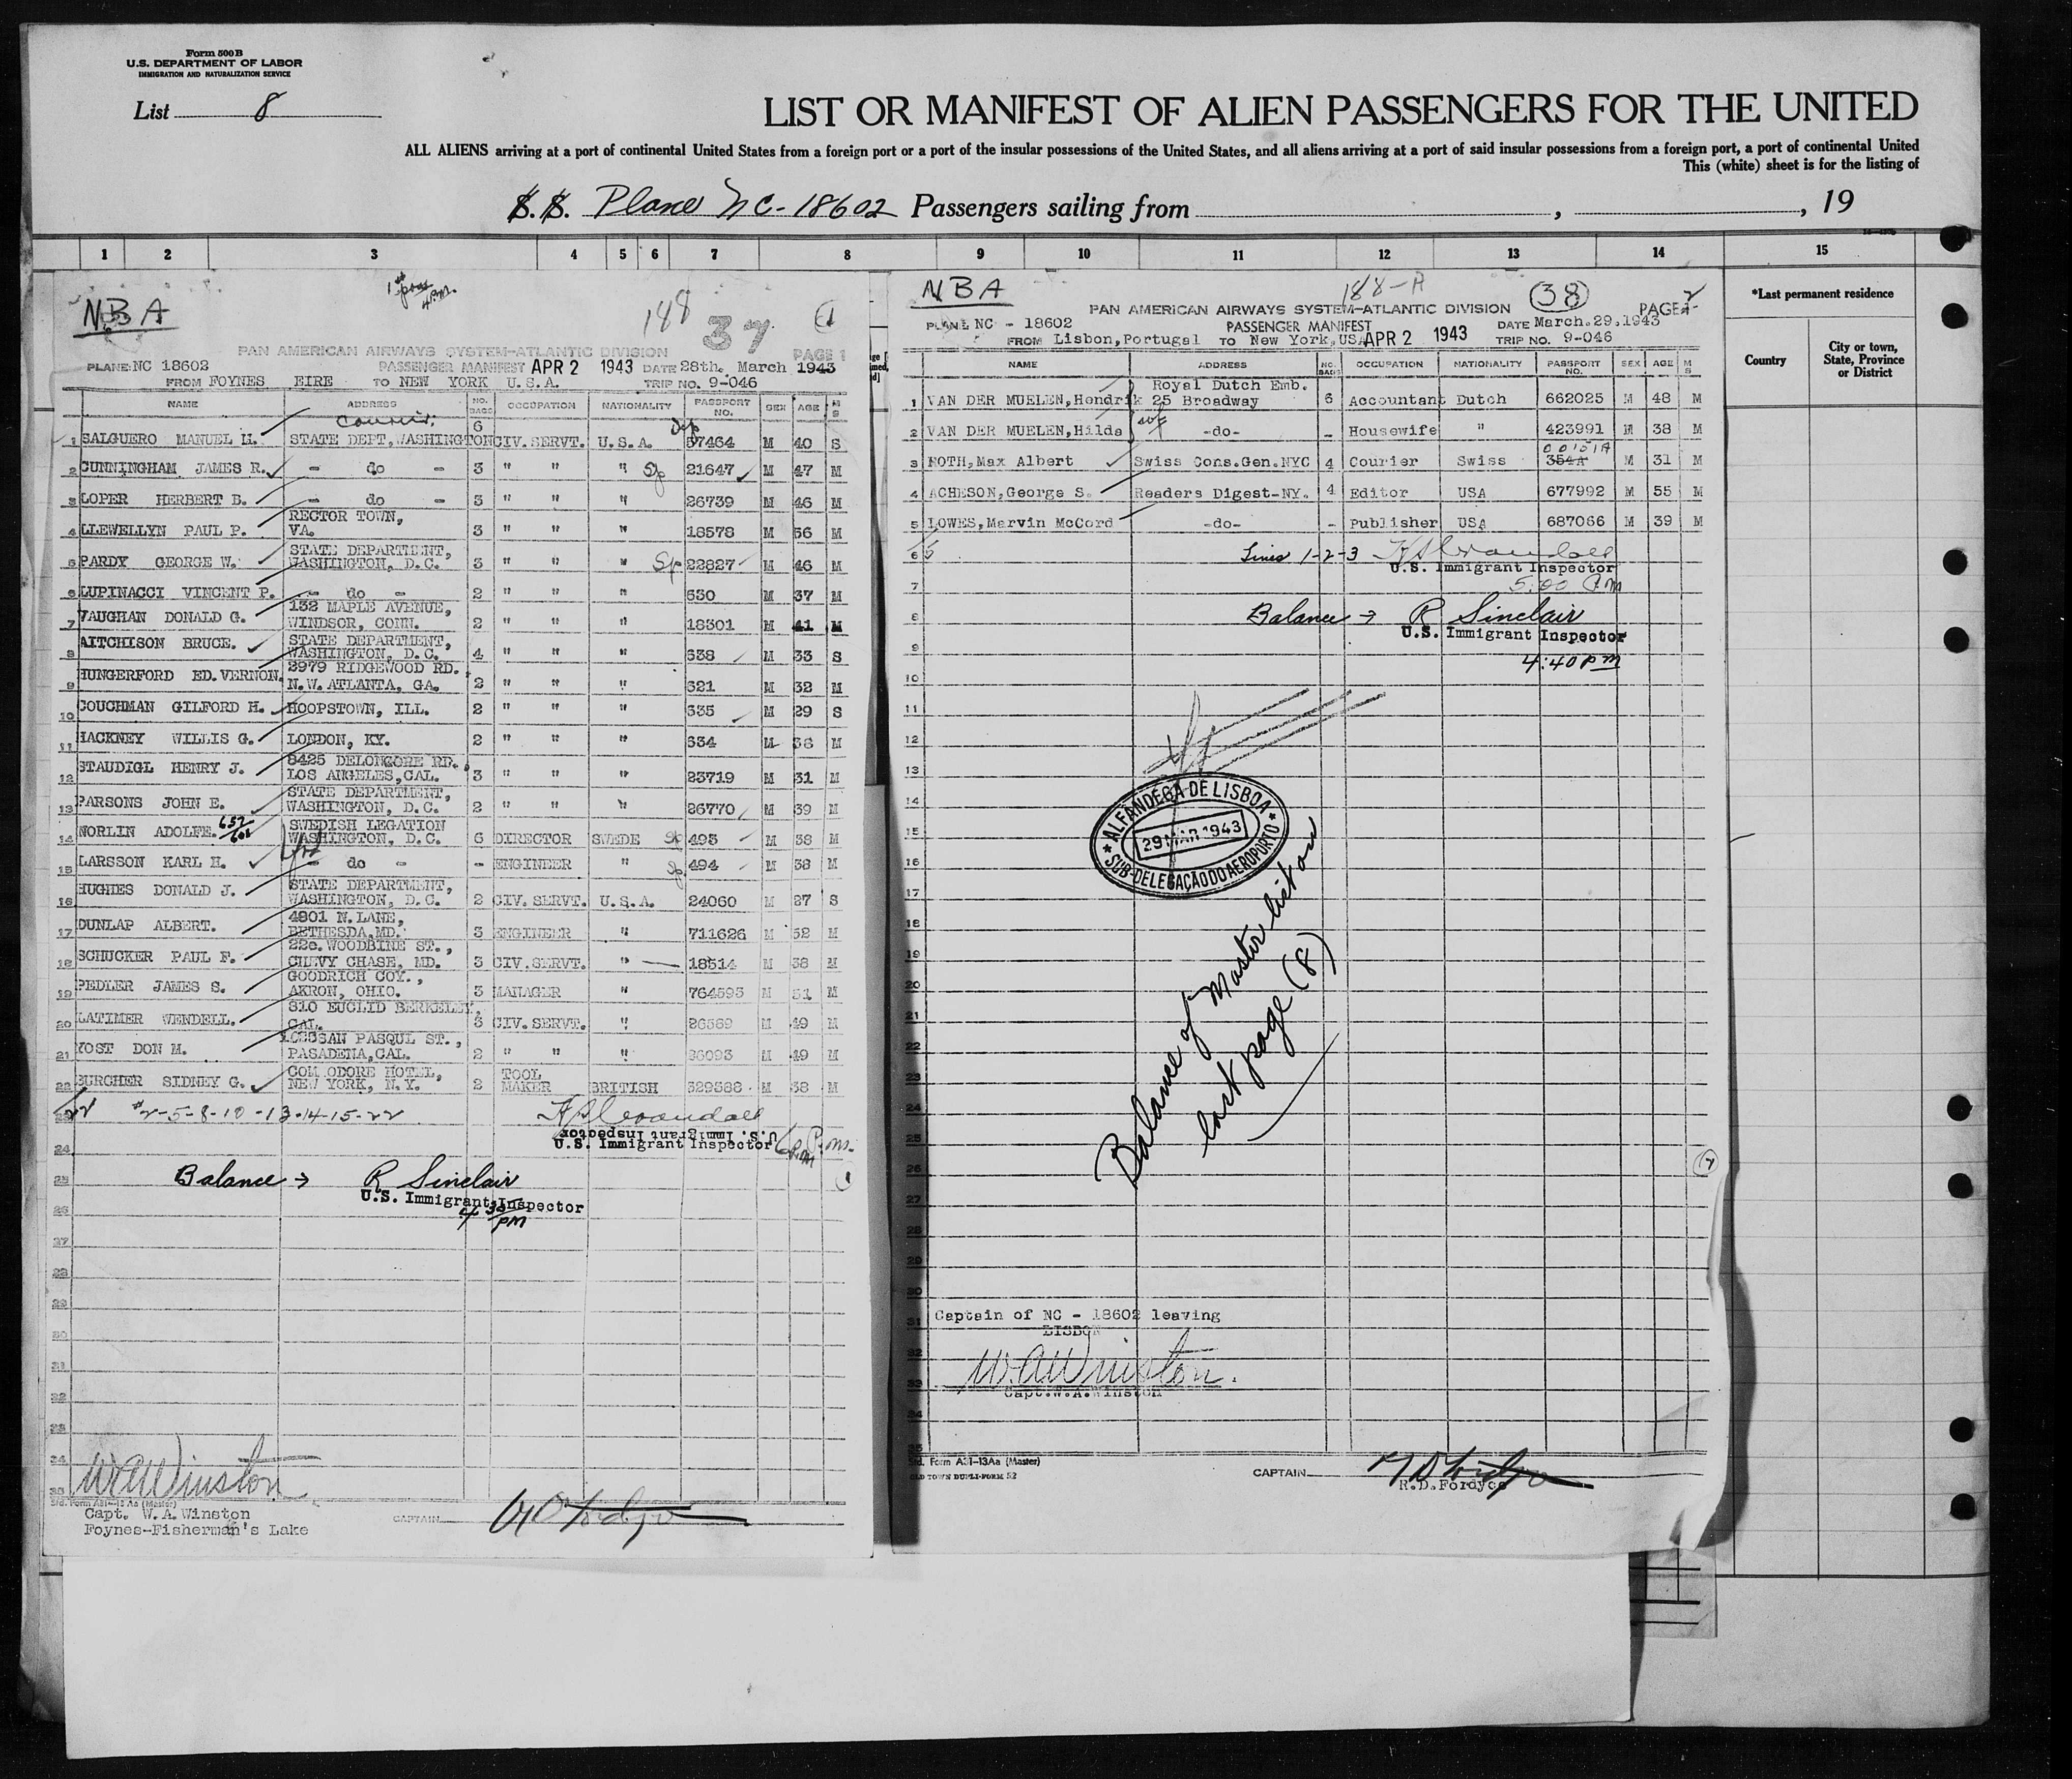 Form 500 B
U.S. DEPARTMENT OF LABOR
IMMIGRATION AND NATURALIZATION SERVICE
List 8
LIST OR MANIFEST OF ALIEN PASSENGERS FOR THE UNITED
ALL ALIENS arriving at a port of continental United States from a foreign port or a port of the insular possessions of the United States, and all aliens arriving at a port of said insular possessions from a foreign port, a port of continental United
This (white) sheet is for the listing of
S.S. Plane NC-18602 Passengers sailing from , , 19
1 2 3 4 5 6 7 8 9 10 11 12 13 14 15
*Last permanent residence
Country
City or town, State, Province or District
NBA
188 37
PAN AMERICAN AIRWAYS SYSTEM-ATLANTIC DIVISION PAGE 1
PLANE NC 18602 PASSENGER MANIFEST APR 2 1943 DATE 28th. March 1943
FROM FOYNES EIRE TO NEW YORK U.S.A. TRIP NO. 9-046
NAME ADDRESS NO. BAGS OCCUPATION NATIONALITY PASSPORT NO. SEX AGE M S
1 SALGUERO MANUEL H. STATE DEPT, WASHINGTON 6 CIV. SERVT. U.S.A. 57464 M 40 S
2 CUNNINGHAM JAMES R. - do - 3 " " " 21647 M 47 M
3 LOPER HERBERT B. - do - 3 " " " 26739 M 46 M
4 LLEWELLYN PAUL P. RECTOR TOWN, VA. 3 " " " 18578 M 56 M
5 PARDY GEORGE W. STATE DEPARTMENT, WASHINGTON, D.C. 3 " " " 22827 M 46 M
6 LUPINACCI VINCENT P. - do - 2 " " " 630 M 37 M
7 VAUGHAN DONALD G. 132 MAPLE AVENUE, WINDSOR, CONN. 2 " " " 18301 M 41 M
8 AITCHISON BRUCE. STATE DEPARTMENT, WASHINGTON, D.C. 4 " " " 638 M 33 S
9 HUNGERFORD ED. VERNON. 2979 RIDGEWOOD RD. N.W. ATLANTA, GA. 2 " " " 621 M 32 M
10 COUCHMAN GILFORD H. HOOPSTOWN, ILL. 2 " " " 635 M 29 S
11 HACKNEY WILLIS G. LONDON, KY. 2 " " " 634 M 36 M
12 STAUDIGL HENRY J. 8425 DELONGORE RD. LOS ANGELES, CAL. 3 " " " 23719 M 31 M
13 PARSONS JOHN E. STATE DEPARTMENT, WASHINGTON, D.C. 2 " " " 26770 M 39 M
14 NORLIN ADOLFE. SWEDISH LEGATION WASHINGTON, D.C. 6 DIRECTOR SWEDE 493 M 38 M
15 LARSSON KARL H. - do - - ENGINEER " 494 M 38 M
16 HUGHES DONALD J. STATE DEPARTMENT, WASHINGTON, D.C. 2 CIV. SERVT. U.S.A. 24060 M 27 S
17 DUNLAP ALBERT. 4801 N. LANE, BETHESDA, MD. 3 ENGINEER " 711626 M 52 M
18 SCHUCKER PAUL F. 22c. WOODBINE ST., CHEVY CHASE, MD. 3 CIV. SERVT. " 18514 M 38 M
19 PEDLER JAMES S. GOODRICH COY., AKRON, OHIO. 3 MANAGER " 764593 M 51 M
20 LATIMER WENDELL. 810 EUCLID BERKELEY, CAL. 3 CIV. SERVT. " 26569 M 49 M
21 YOST DON M. PASQUL ST., PASADENA, CAL. 2 " " " 26093 M 49 M
22 BURCHER SIDNEY G. COMODORE HOTEL, NEW YORK, N.Y. 2 TOOL MAKER BRITISH 329388 M 38 M
22 #2-5-8-10-13-14-15-22
U.S. Immigrant Inspector
Balance → R Sinclair
U.S. Immigrant Inspector
4 30 PM
W.A. Winston
Std. Form A31-13 Aa (Master)
Capt. W.A. Winston
Foynes-Fisherman's Lake
CAPTAIN
NBA
188-A 38
PAN AMERICAN AIRWAYS SYSTEM-ATLANTIC DIVISION PAGE 2
PLANE NC - 18602 PASSENGER MANIFEST DATE March.29,1943
FROM Lisbon, Portugal TO New York, USA APR 2 1943 TRIP NO. 9-046
NAME ADDRESS NO. BAGS OCCUPATION NATIONALITY PASSPORT NO. SEX AGE M S
1 VAN DER MUELEN, Hendrik Royal Dutch Emb. 25 Broadway 6 Accountant Dutch 662025 M 48 M
2 VAN DER MUELEN, Hilda -do- - Housewife " 423991 M 38 M
3 ROTH, Max Albert Swiss Cons.Gen.NYC 4 Courier Swiss 354A M 31 M
4 ACHESON, George S. Readers Digest-NY. 4 Editor USA 677992 M 55 M
5 LOWES, Marvin McCord -do- - Publisher USA 687066 M 39 M
5 Lines 1-2-3
U.S. Immigrant Inspector
5:00 PM
Balance → R Sinclair
U.S. Immigrant Inspector
4:40 PM
ALFANDEGA DE LISBOA
29 MAR 1943
SUB-DELEGAÇÃO DO AEROPORTO
Balance of Master list on
last page (8)
Captain of NC - 18602 leaving
LISBON
W.A. Winston.
Capt. W.A. Winston
Std. Form A31-13Aa (Master)
OLD TOWN DUPLI-FORM 52
CAPTAIN
R.D. Fordyce